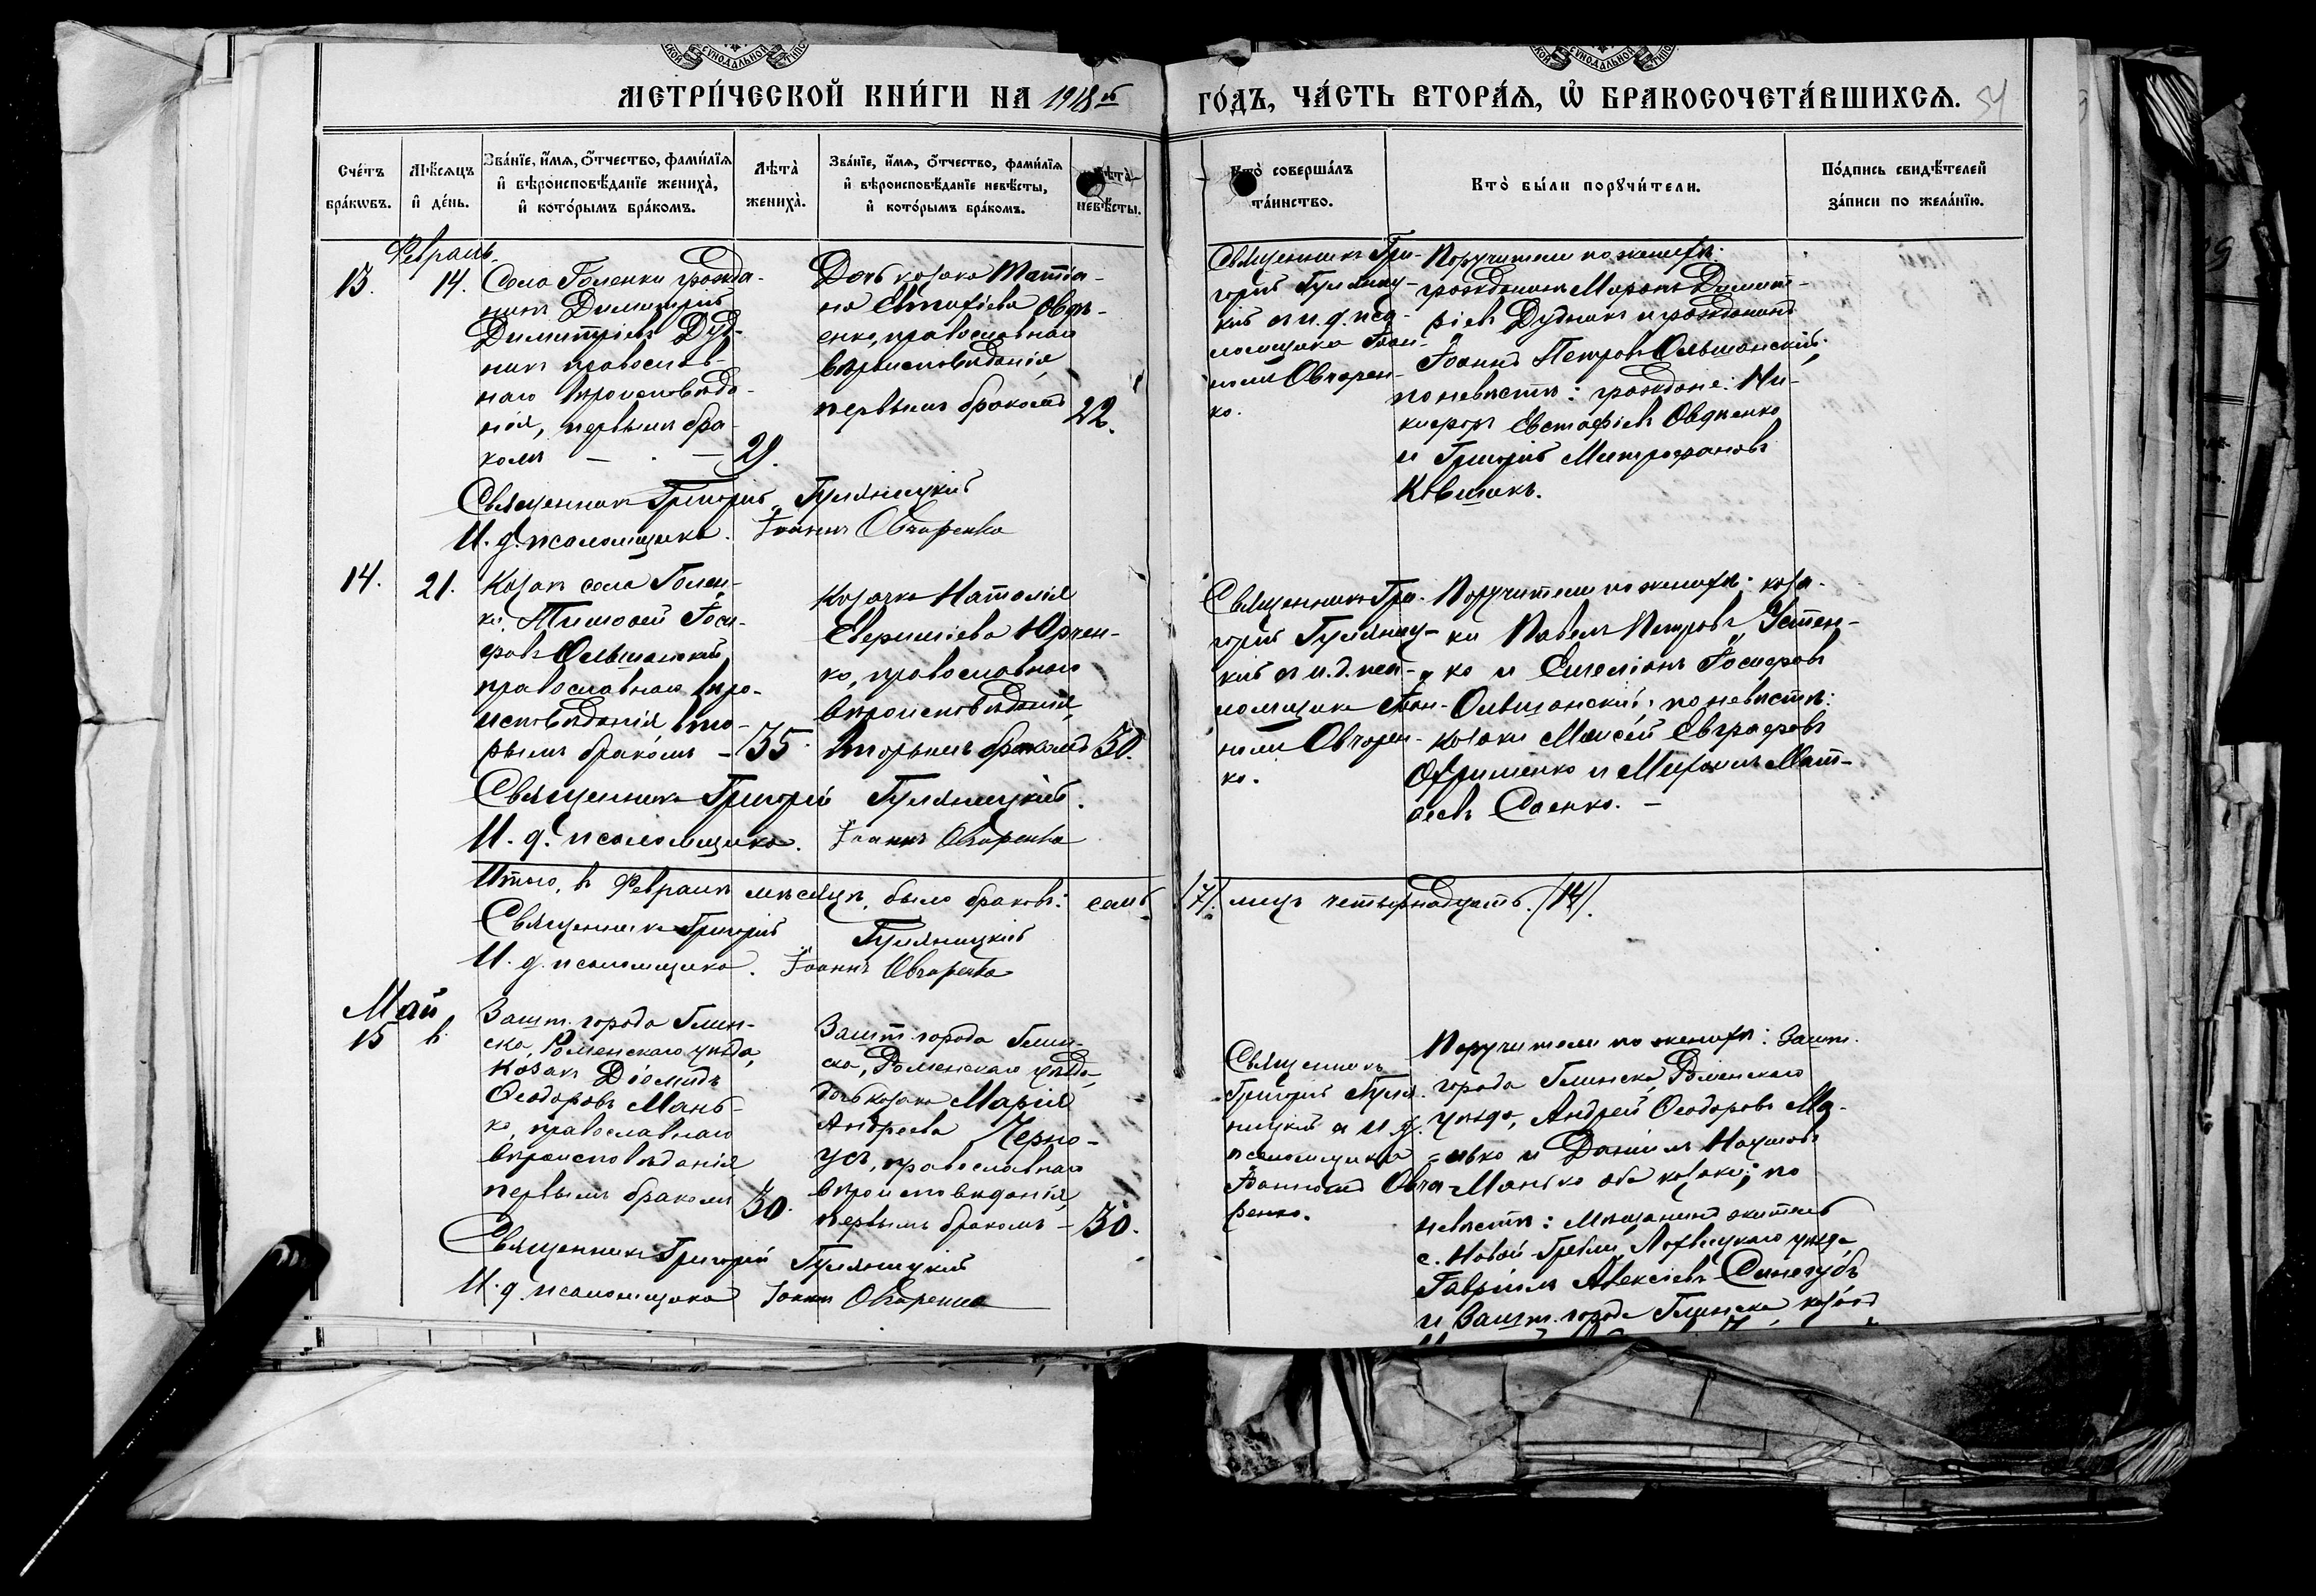 МЕТРИ́ЧЕСКОЙ КНИ́ГИ НА 1918й
ГО́ДЪ, ЧА́СТЬ ВТОРА́Я, Ѡ҆ БРАКОСОЧЕТА́ВШИХСЯ.
54
Сче́тъ
бра́кѡвъ.
Мѣ́сяцъ
и҆ де́нь.
Зва́нїе, и҆́мя, ѻ҆́тчество, фами́лїя
и҆ вѣроисповѣ́данїе жениха̀,
и҆ кото́рымъ бра́комъ.
Лѣта̀
жениха̀.
Зва́нїе, и҆́мя, ѻ҆́тчество, фами́лїя
и҆ вѣроисповѣ́данїе невѣ́сты,
и҆ кото́рымъ бра́комъ.
Лѣта̀
невѣ́сты.
Кто̀ соверша́лъ
та́инство.
Кто̀ бы́ли порꙋчи́тели.
По́дпись свидѣ́телей
за́писи по жела́нїю.
Февраль.
13.
14.
Села Голенки гражда-
нинъ Димитрій
Димитріевъ Дуд-
никъ православ-
наго вѣроисповѣда-
нія, первымъ бра-
комъ
29.
Дочь козака Татіа-
на Евстафіева Овдѣ-
енко, православнаго
вѣроисповѣданія,
первымъ бракомъ
22.
Священникъ Гри-
горій Гуляниц-
кій съ и. д. пса-
ломщика Іоан-
номъ Овчарен-
ко.
Поручители по женихѣ:
гражданинъ Маркъ Димит-
ріевъ Дудникъ и гражданинъ
Іоаннъ Петровъ Ольшанскій;
по невѣстѣ: граждане: Ни-
кифоръ Евстафіевъ Овдіенко
и Григорій Митрофановъ
Ковшикъ.
Священникъ Григорій Гуляницкій
И. д. псаломщика Іоаннъ Овчаренко
14.
21.
Козакъ села Голен-
ки Тимоѳей Іоси-
фовъ Ольшанскій,
православнаго вѣро-
исповѣданія вто-
рымъ бракомъ
35.
Козачка Наталія
Евфиміева Юрчен-
ко, православнаго
вѣроисповѣданія,
вторымъ бракомъ
30.
Священникъ Гри-
горій Гуляниц-
кій съ и. д. пса-
ломщика Іоан-
номъ Овчарен-
ко.
Поручители по женихѣ: коза-
ки Павелъ Петровъ Устен-
ко и Симеонъ Іосифовъ
Ольшанскій; по невѣстѣ:
козаки Моисей Евграфовъ
Охрименко и Михаилъ Мат-
ѳеевъ Саенко.
Священникъ Григорій Гуляницкій.
И. д. псаломщика. Іоаннъ Овчаренко
Итого, въ Февралѣ мѣсяцѣ, было браковъ: семь /7/. лицъ четырнадцать. /14/.
Священникъ Григорій Гуляницкій
И. д. псаломщика. Іоаннъ Овчаренко
Май
15
6.
Зашт. города Глин-
ска, Роменскаго уѣзда,
козакъ Діомидъ
Ѳеодоровъ Мань-
ко, православнаго
вѣроисповѣданія,
первымъ бракомъ
30.
Зашт. города Глин-
ска, Роменскаго уѣзда,
дочь козака Марія
Андреева Черно-
усъ, православнаго
вѣроисповѣданія,
первымъ бракомъ
30.
Священникъ
Григорій Гуля-
ницкій съ и. д.
псаломщика
Іоанномъ Овча-
ренко.
Поручители по женихѣ: Зашт.
города Глинска, Роменскаго
уѣзда, Андрей Ѳеодоровъ Ма-
нько и Даніилъ Наумовъ
Манько оба козаки; по
невѣстѣ: мѣщанинъ житель
с. Новой-Гребли, Лохвицкаго уѣзда
Гавріилъ Алексіевъ Синегубъ
и Зашт. города Глинска, козакъ
Священникъ Григорій Гуляницкій
И. д. псаломщика Іоаннъ Овчаренко